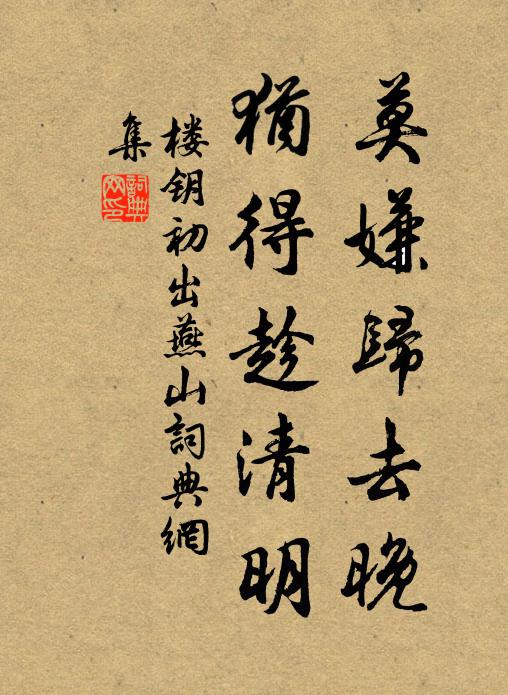 莫嫌歸去晚
猶得趁清明
楼钥初出燕山詞典網
集
詞典
网印